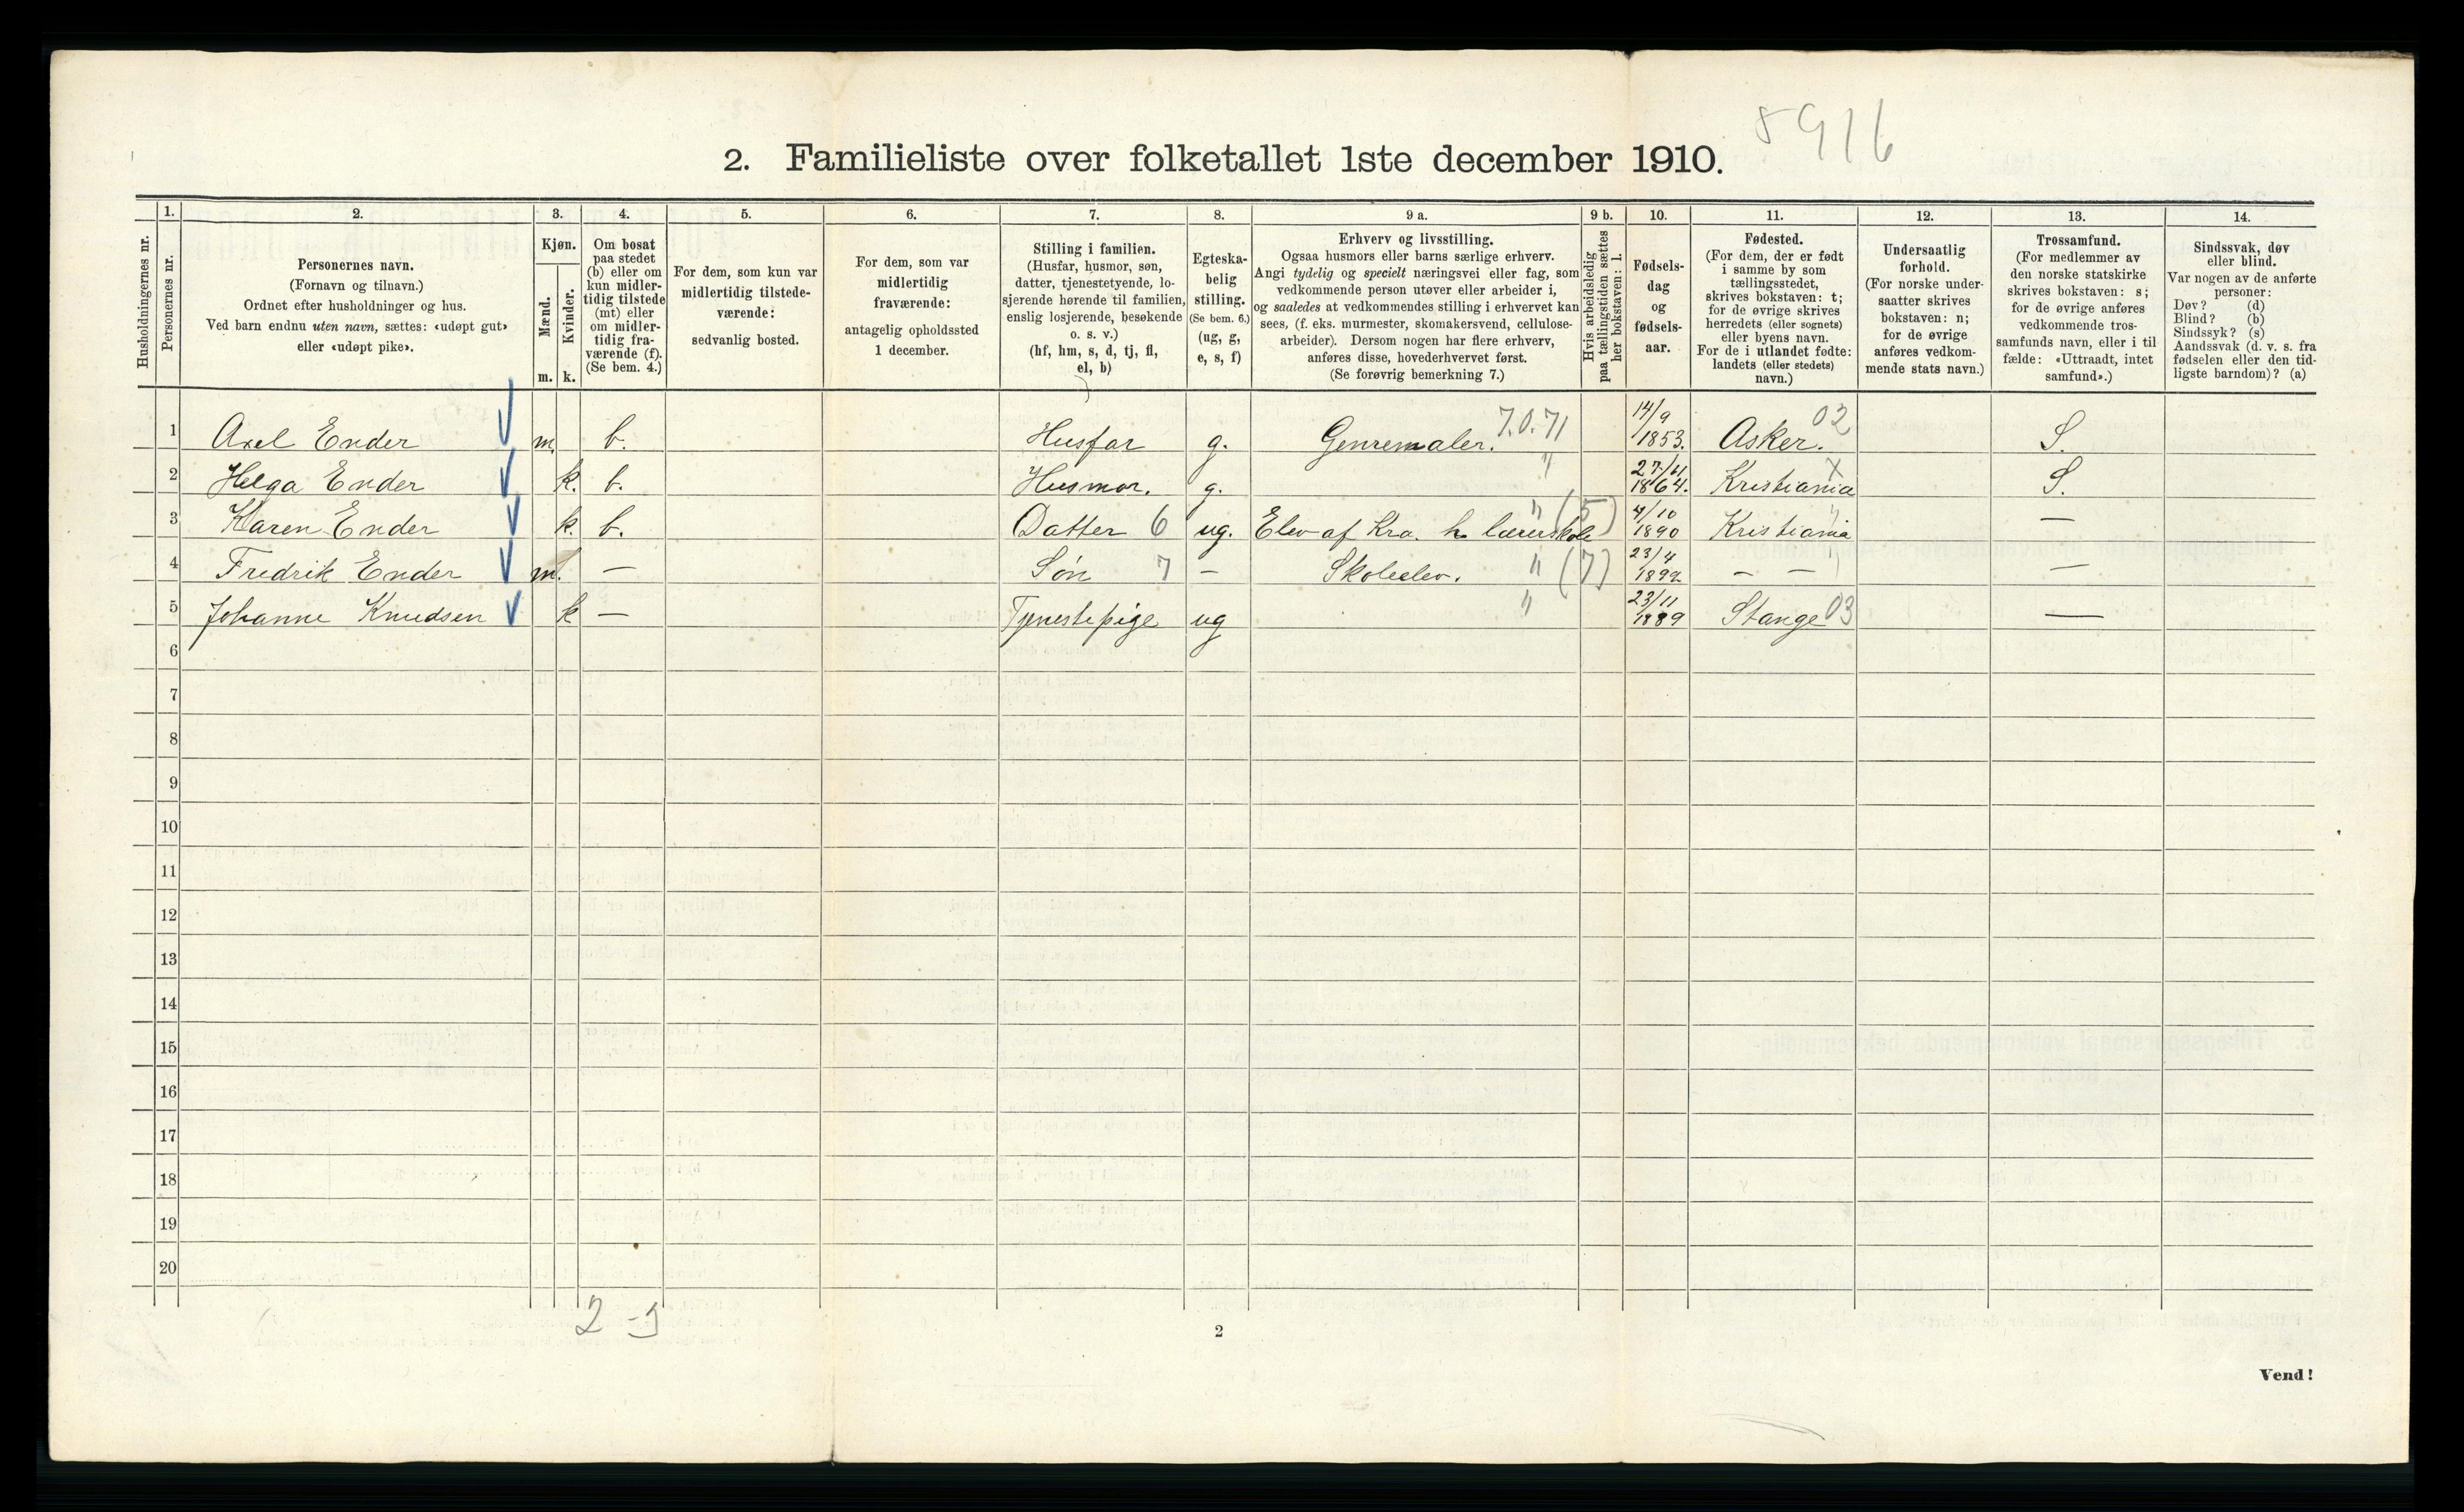 5916
2. Familieliste over folketallet 1ste december 1910.
Husholdningernes nr.
1.
Personernes nr.
2.
Personernes navn.
(Fornavn og tilnavn.)
Ordnet efter husholdninger og hus.
Ved barn endnu uten navn, sættes: «udøpt gut»
eller «udøpt pike».
3.
Kjøn.
Mænd.
Kvinder.
m. k.
4.
Om bosat
paa stedet
(b) eller om
kun midler-
tidig tilstede
(mt) eller
om midler-
tidig fra-
værende (f).
(Se bem. 4.)
5.
For dem, som kun var
midlertidig tilstede-
værende:
sedvanlig bosted.
6.
For dem, som var
midlertidig
fraværende:
antagelig opholdssted
1 december.
7.
Stilling i familien.
(Husfar, husmor, søn,
datter, tjenestetyende, lo-
sjerende hørende til familien,
enslig losjerende, besøkende
o. s. v.)
(hf, hm, s, d, tj, fl,
el, b)
8.
Egteska-
belig
stilling.
(Se bem. 6.)
(ug, g,
e, s, f)
9 a.
Erhverv og livsstilling.
Ogsaa husmors eller barns særlige erhverv.
Angi tydelig og specielt næringsvei eller fag, som
vedkommende person utøver eller arbeider i,
og saaledes at vedkommendes stilling i erhvervet kan
sees, (f. eks. murmester, skomakersvend, cellulose-
arbeider). Dersom nogen har flere erhverv,
anføres disse, hovederhvervet først.
(Se forøvrig bemerkning 7.)
9 b.
Hvis arbeidsledig
paa tællingstiden sættes
her bokstaven: l.
10.
Fødsels-
dag
og
fødsels-
aar.
11.
Fødested.
(For dem, der er født
i samme by som
tællingsstedet,
skrives bokstaven: t;
for de øvrige skrives
herredets (eller sognets)
eller byens navn.
For de i utlandet fødte:
landets (eller stedets)
navn.)
12.
Undersaatlig
forhold.
(For norske under-
saatter skrives
bokstaven: n;
for de øvrige
anføres vedkom-
mende stats navn.)
13.
Trossamfund.
(For medlemmer av
den norske statskirke
skrives bokstaven: s;
for de øvrige anføres
vedkommende tros-
samfunds navn, eller i til
fælde: «Uttraadt, intet
samfund».)
14.
Sindssvak, døv
eller blind.
Var nogen av de anførte
personer:
Døv? (d)
Blind? (b)
Sindssyk? (s)
Aandssvak (d. v. s. fra
fødselen eller den tid-
ligste barndom)? (a)
1 Axel Ender m. b. Husfar g. Genremaler. 7.0.71 14/9 1853. Asker. 02 S.
2 Helga Ender k. b. Husmor. g. " 27/11 1864. Kristiania x S.
3 Karen Ender k. b. Datter 6 ug. Elev af Kra. h. lærerskole " (5) 4/10 1890 Kristiania " —
4 Fredrik Ender m. — Søn 7 – Skoleelev. " (7) 23/4 1892 – – " —
5 Johanne Knudsen k — Tjenestepige ug " 23/11 1889 Stange 03 —
6
7
8
9
10
11
12
13
14
15
16
17
18
19
20
2 – 3
2
Vend!